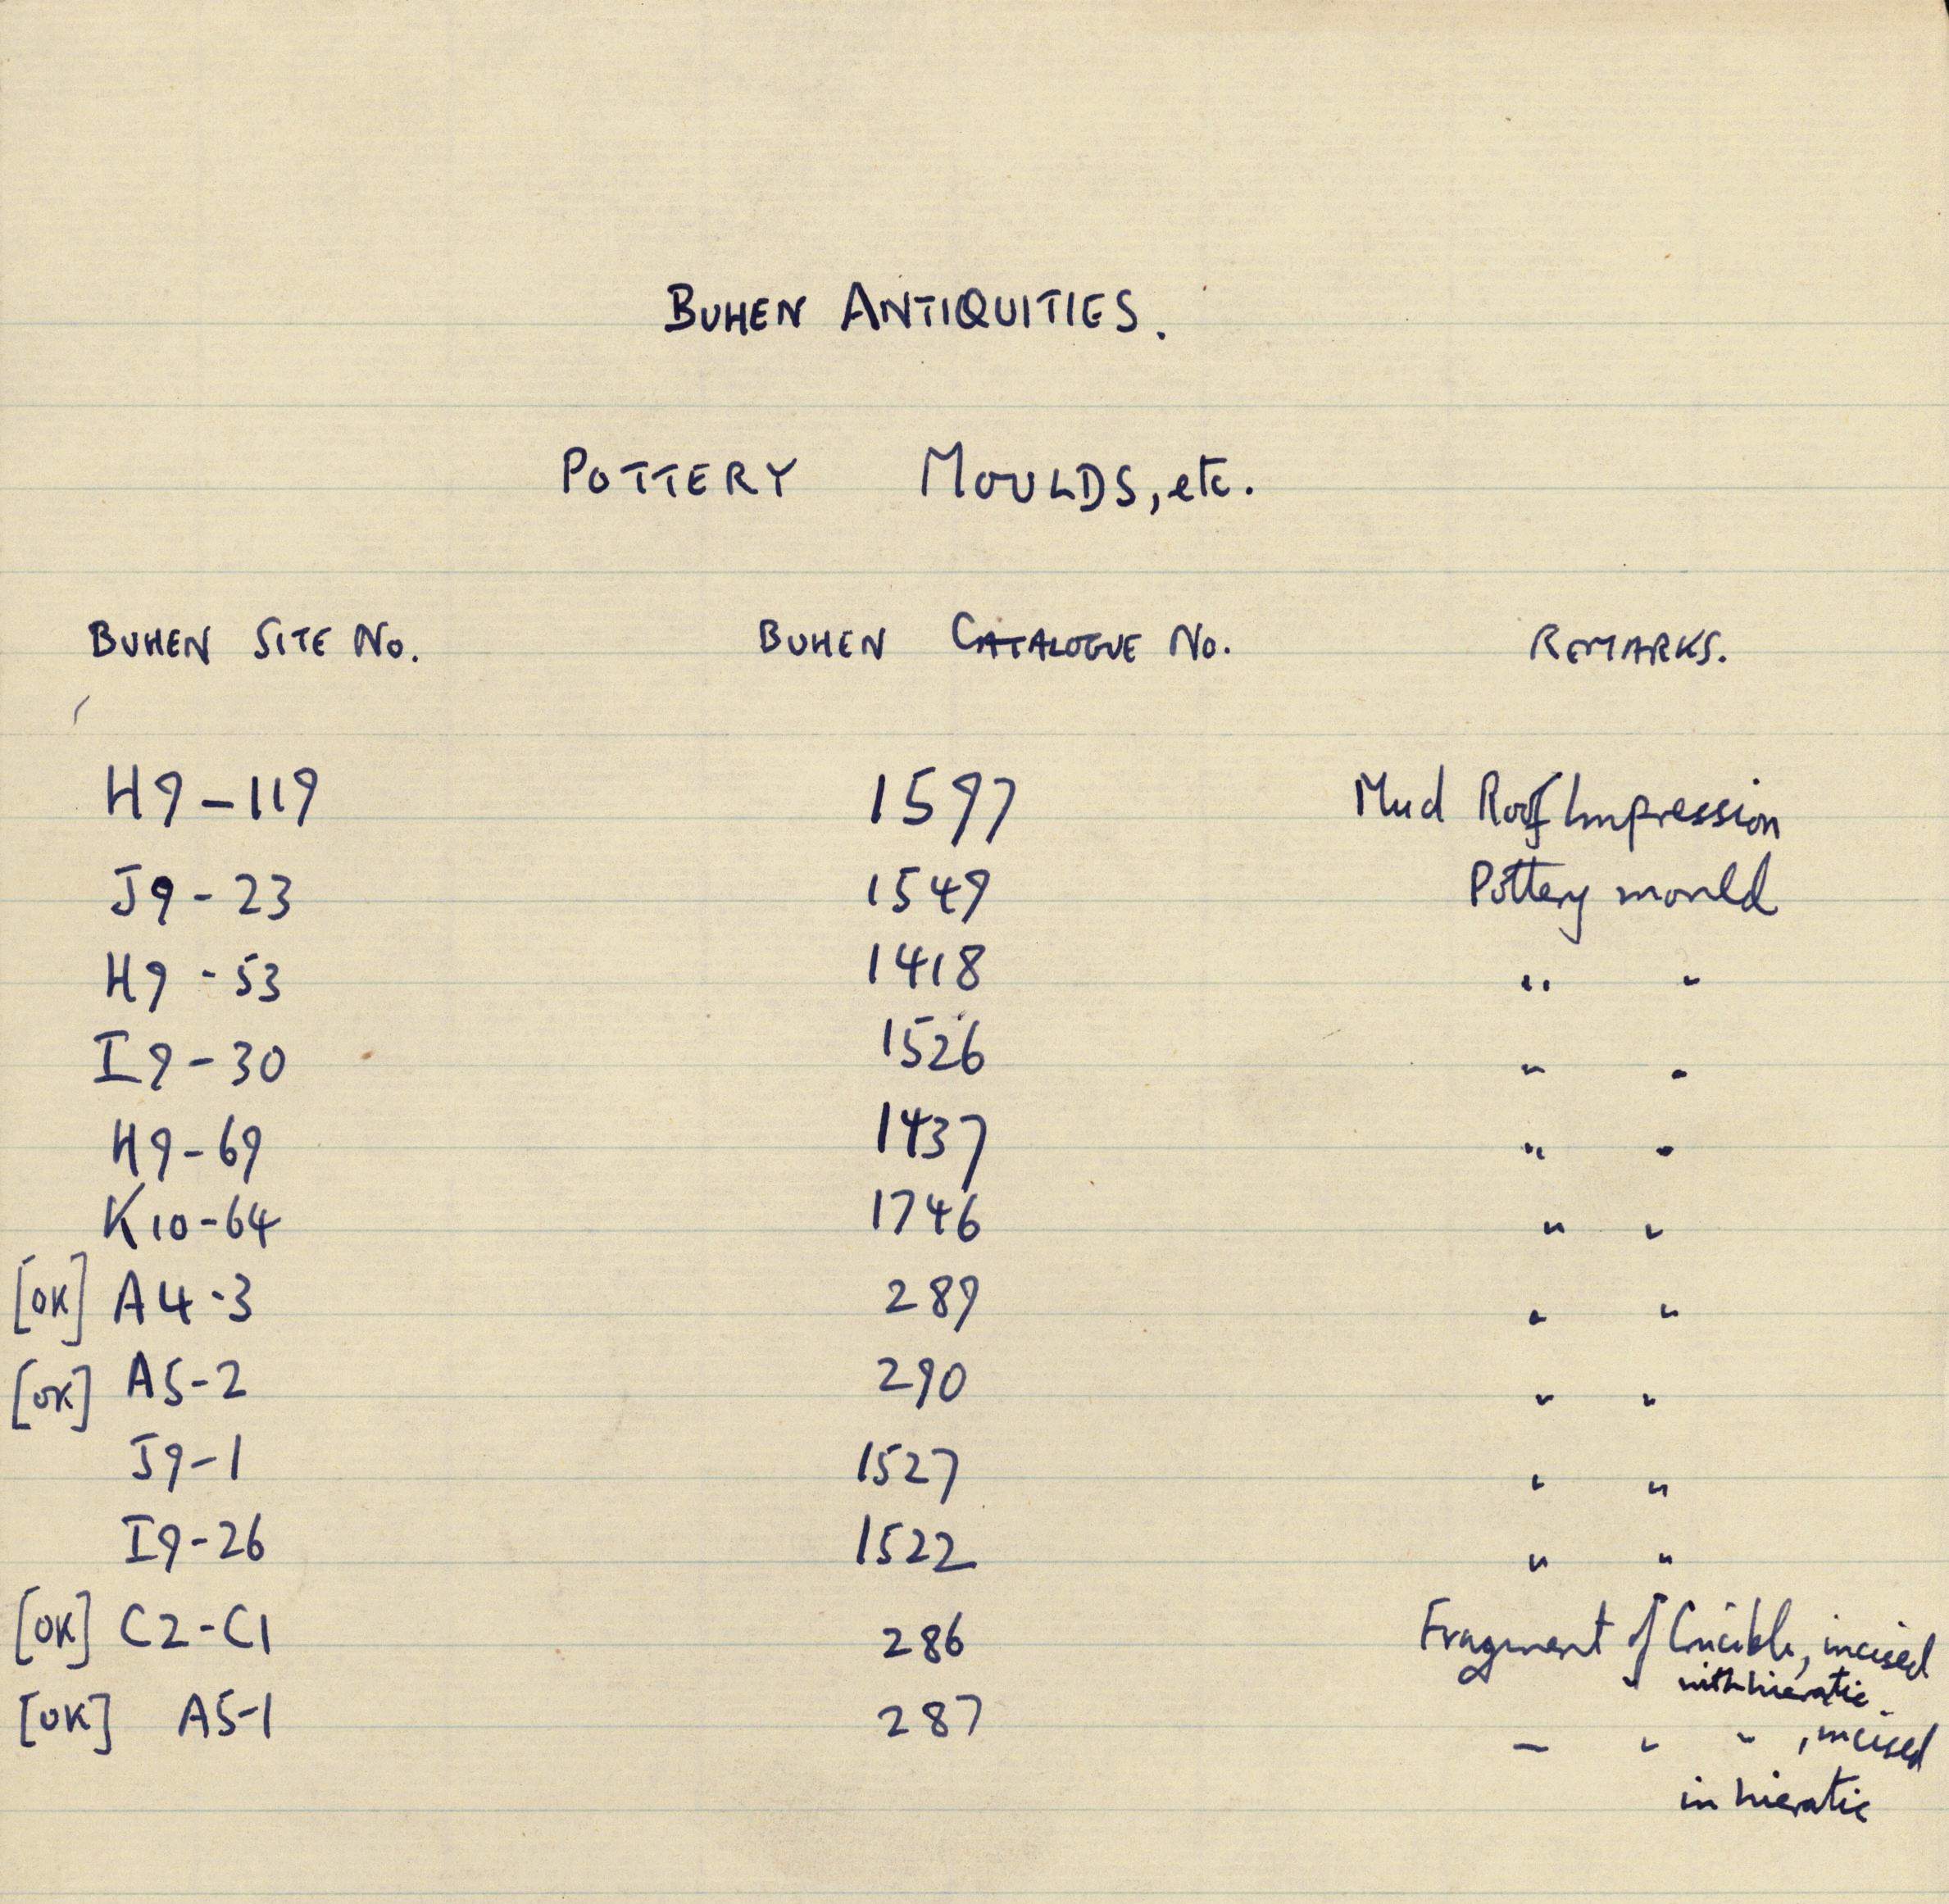 BUHEN ANTIQUITIES.
POTTERY MOULDS, etc.
BUHEN SITE No. BUHEN CATALOGUE No. REMARKS.
H9-119 1597 Mud Roof Impression
J9-23 1549 Pottery mould
H9-53 1418 " "
I9-30 1526 " "
H9-69 1437 " "
K10-64 1746 " "
[OK] A4-3 289 " "
[OK] A5-2 290 " "
J9-1 1527 " "
I9-26 1522 " "
[OK] C2-C1 286 Fragment of Crucible, incised
with hieratic.
[OK] A5-1 287 — " " , incised
in hieratic